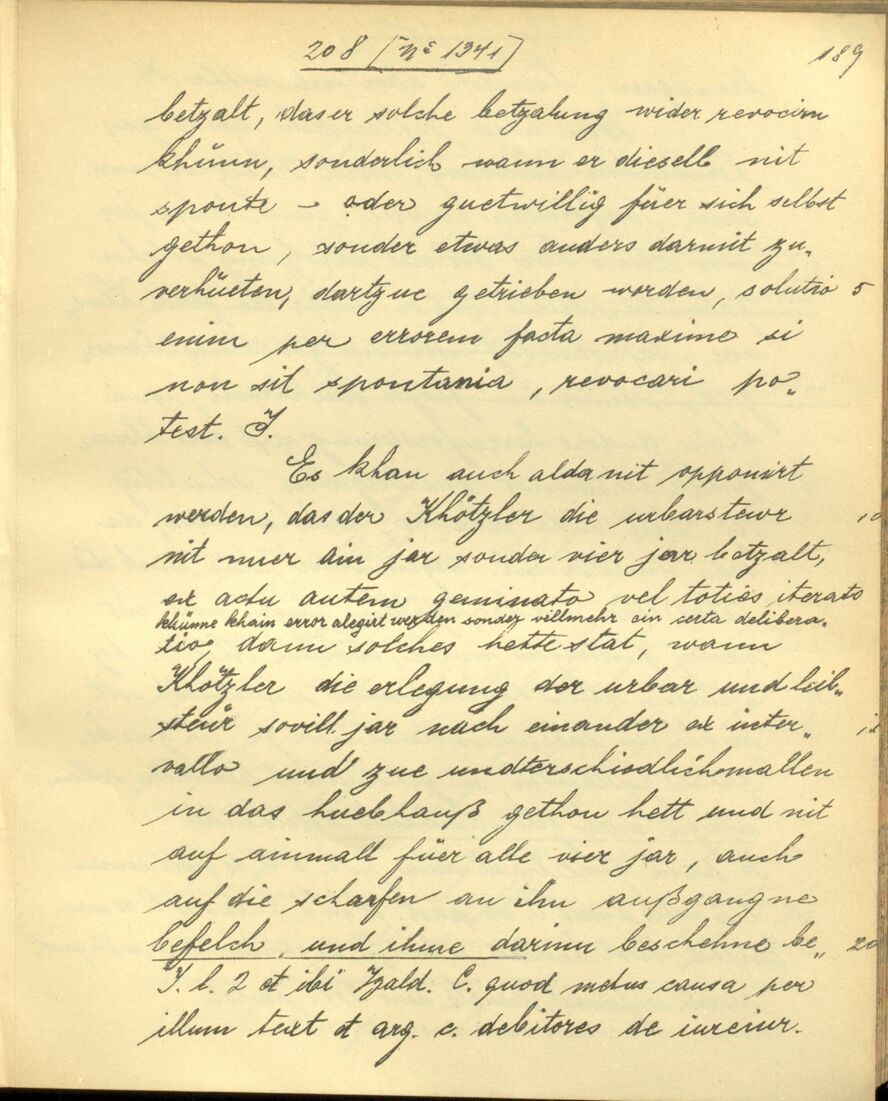 208 [Nº 1341] 189
betzalt, das er solche betzalung wider revocirn
khünn, sonderlich wann er diesell nit
sponte – oder guetwillig füer sich selbst
gethon, sonder etwas anders darmit zu„
verhüeten, dartzue getrieben worden, solutio 5
enim per errorem facta maxime si
non sit spontania, revocari po„
test. I.
Es khan auch alda nit opponirt
werden, das der Khötzler die urbarsteur 10
nit nuer ain jar sonder vier jar betzalt,
ex actu autem geminato vel toties iterato
khünne khain error alegirt werden sonder villmehr ein certa delibera„
tio, dann solches hette stat, wann
Khötzler die erlegung der urbar und leib„
steür sovill jar nach einander ex inter„ 15
vallo und zue undterschiedlichmallen
in das huebhauß gethon hett und nit
auf ainmall füer alle vier jar, auch
auf die scharfen an ihn außgangne
befelch, und ihme darinn beschehne be„ 20
I. l. 2 et ibi Bald. C. quod metus causa per
illum text et arg. c. debitores de iureiur.